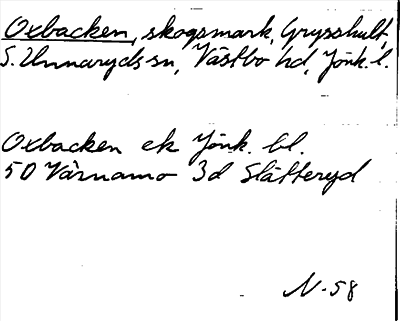 Oxbacken, skogsmark, Grysshult,
S. Unnaryds sn, Västbo hd, Jönk. l.
Oxbacken ek Jönk. bl.
50 Värnamo 3d Slätteryd
N-58